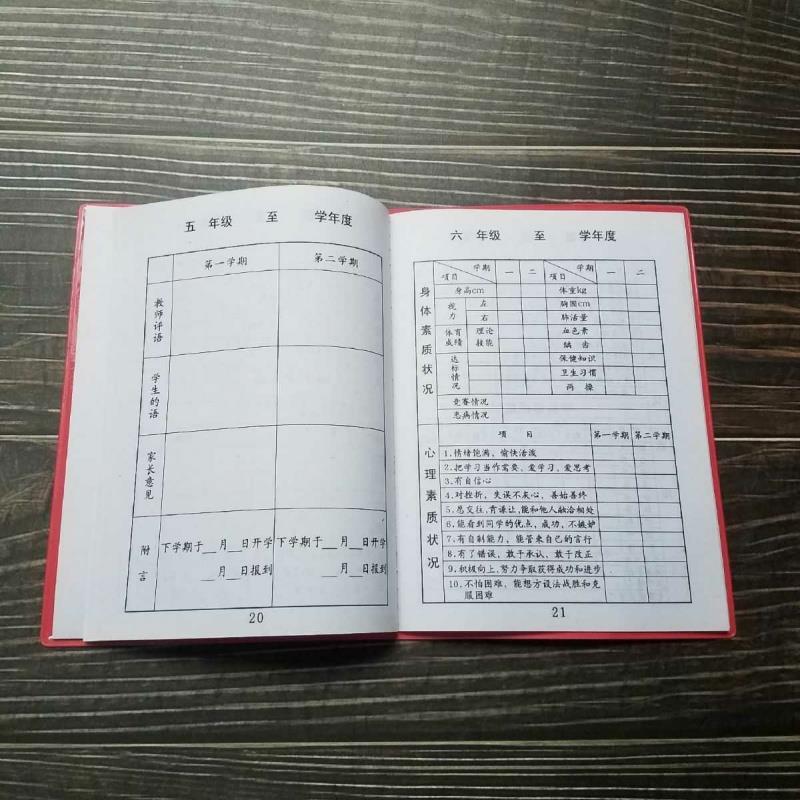 五 年级 至 学年度
第一学期 第二学期
教师评语
学生的话
家长意见
附言
下学期于__月__日开学 下学期于__月__日开学
__月__日报到 __月__日报到
20
六 年级 至 学年度
身体素质状况
项目 学期 一 二 项目 学期 一 二
身高cm 体重kg
视力 左 胸围cm
右 肺活量
体育成绩 理论 血色素
技能 龋齿
达标情况 保健知识
卫生习惯
两操
竞赛情况
患病情况
心理素质状况
项目 第一学期 第二学期
1.情绪饱满，愉快活泼
2.把学习当作需要，爱学习，爱思考
3.有自信心
4.对挫折，失误不灰心，善始善终
5.恳交往，肯谦让，能和他人融洽相处
6.能看到同学的优点，成功，不嫉妒
7.有自制能力，能管束自己的言行
8.有了错误，敢于承认，敢于改正
9.积极向上，努力争取获得成功和进步
10.不怕困难，能想方设法战胜和克
服困难
21